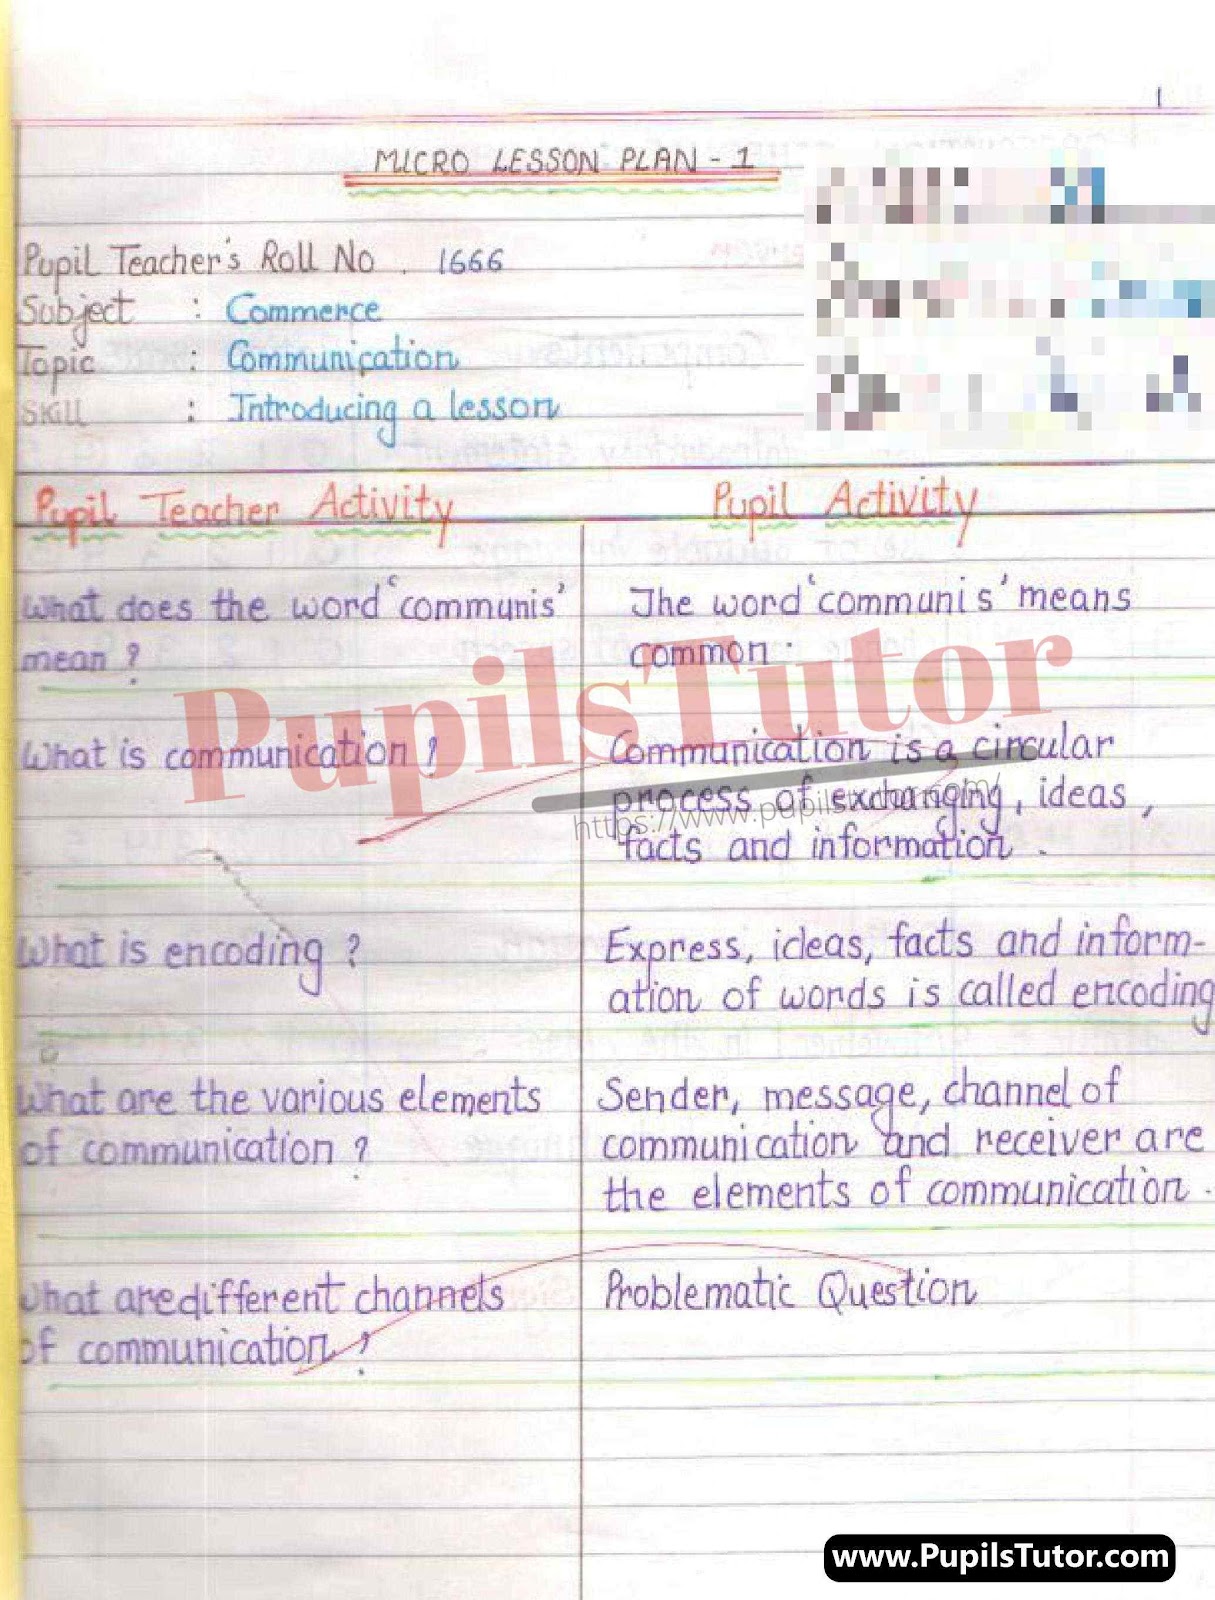 1
MICRO LESSON PLAN - 1
Pupil Teacher's Roll No . 1666
Subject : Commerce
Topic : Communication
Skill : Introducing a lesson
Pupil Teacher Activity
Pupil Activity
What does the word 'communis'
mean ?
The word 'communis' means
common.
What is communication ?
Communication is a circular
process of exchanging, ideas,
facts and information.
What is encoding ?
Express, ideas, facts and inform-
ation of words is called encoding
What are the various elements
of communication ?
Sender, message, channel of
communication and receiver are
the elements of communication.
What are different channels
of communication ?
Problematic Question
PupilsTutor
www.PupilsTutor.com